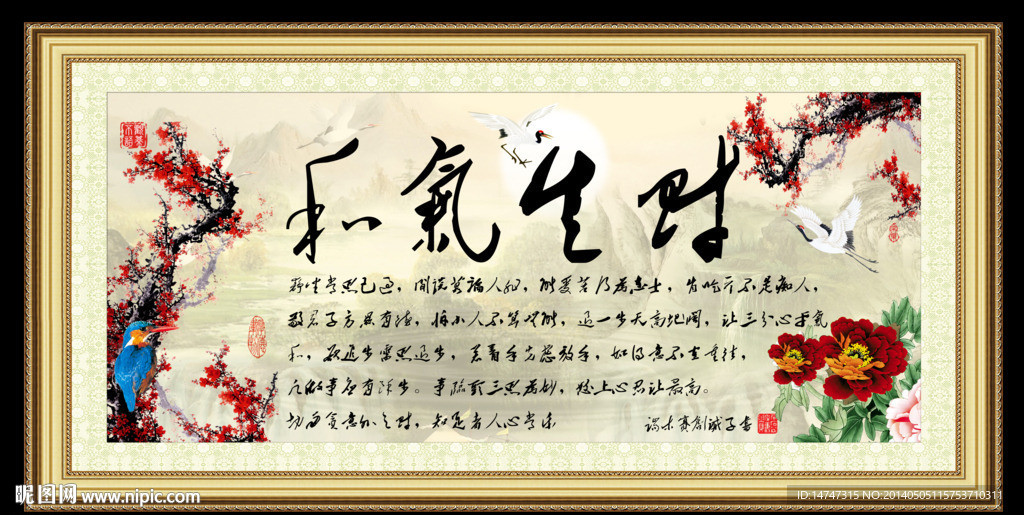 和氣生财
静坐常思己过，闲谈莫论人非，能受苦乃为志士，肯吃亏不是痴人，
敬君子方显有德，怕小人不算无能，退一步天高地阔，让三分心平气
和，欲进步需思退步，若着手先虑放手，如得意不宜重往，
凡做事应有余步。事临头三思为妙，怒上心忍让最高。
切勿贪意外之财，知足者人心常乐
昵图网 www.nipic.com
ID:14747315 NO:20140505115753710311